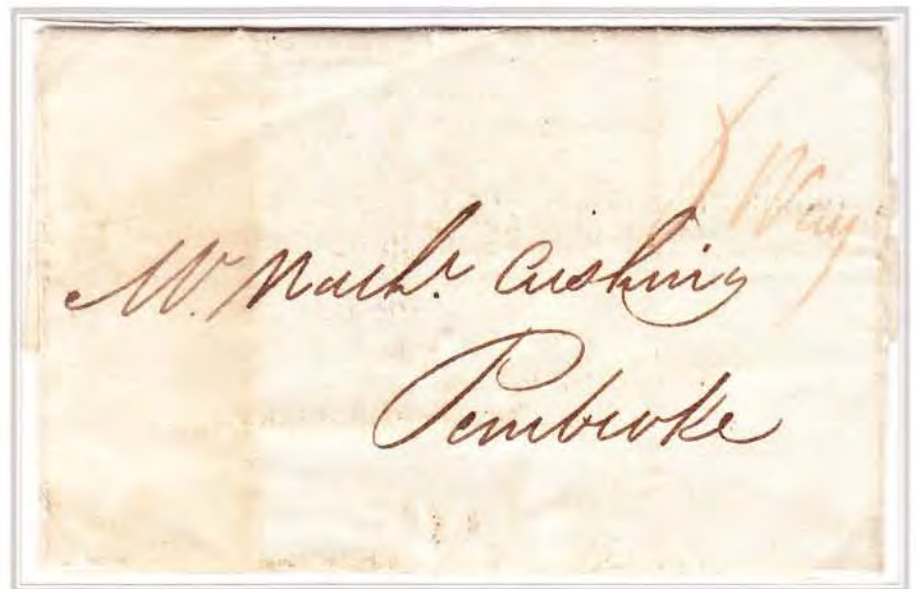 Way
Mr. Nathl. Cushing
Pembroke